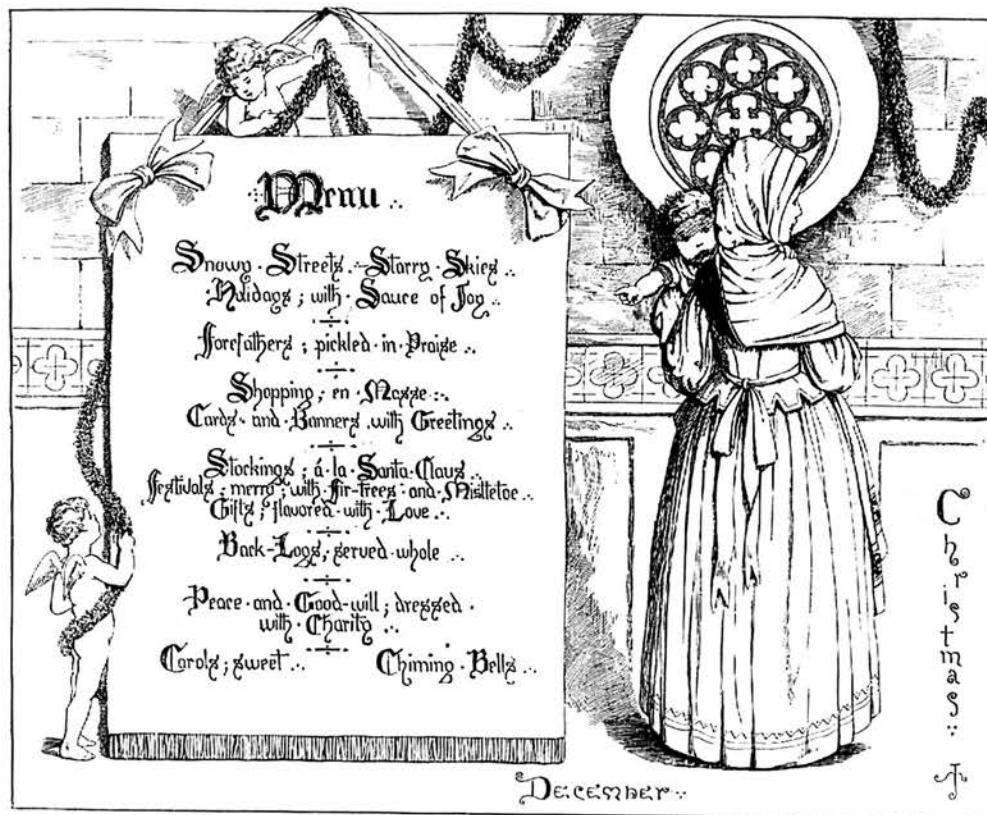 Menu
Snowy Streets Starry Skies
Holidays; with Sauce of Joy
Forefathers; pickled in Praise
Shopping; en Masse
Cards and Banners with Greetings
Stockings; á la Santa Claus
Festivals merry; with Fir-trees and Mistletoe
Gifts; flavored with Love
Back-Logs, served whole
Peace and Good-will; dressed
with Charity
Carols; sweet Chiming Bells
Christmas
December